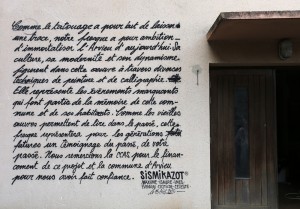 Comme le tatouage a pour but de laisser
une trace, notre fresque a pour ambition
d'immortaliser l'Arvieu d'aujourd'hui. Sa
culture, sa modernité et son dynamisme
figurent dans cette oeuvre à travers diverses
techniques de peinture et de calligraphie.
Elle représente les évènements marquants
qui font parties de la mémoire de cette com-
mune et de ses habitants. Comme les vieilles
oeuvres permettent de lire dans le passé, cette
fresque représentera pour les générations
futures un témoignage du passé, de notre
passé. Nous remercions la pour le finan-
cement de ce projet et la commune d'Arvieu
pour nous avoir fait confiance.
SISMIKAZOT